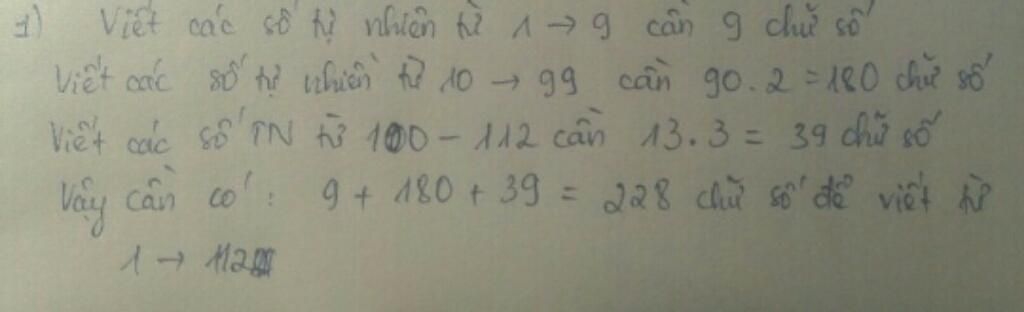 1) Viết các số tự nhiên từ 1 → 9 cần 9 chữ số
Viết các số tự nhiên từ 10 → 99 cần 90.2 = 180 chữ số
Viết các số TN từ 100 - 112 cần 13.3 = 39 chữ số
Vậy cần có : 9 + 180 + 39 = 228 chữ số để viết từ
1 → 112